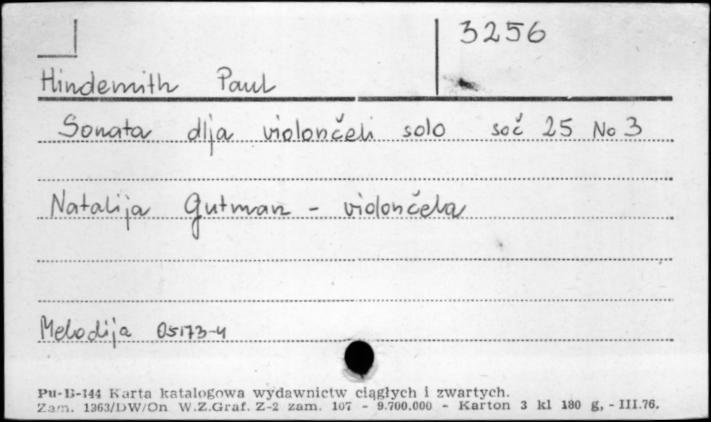 3256
Hindemith Paul
Sonata dlja violončeli solo soč 25 No 3
Natalija Gutman - violončela
Melodija 05173-4
Pu-B-144 Karta katalogowa wydawnictw ciągłych i zwartych.
Zam. 1363/DW/On W.Z.Graf. Z-2 zam. 107 - 9.700.000 - Karton 3 kl 180 g, - III.76.